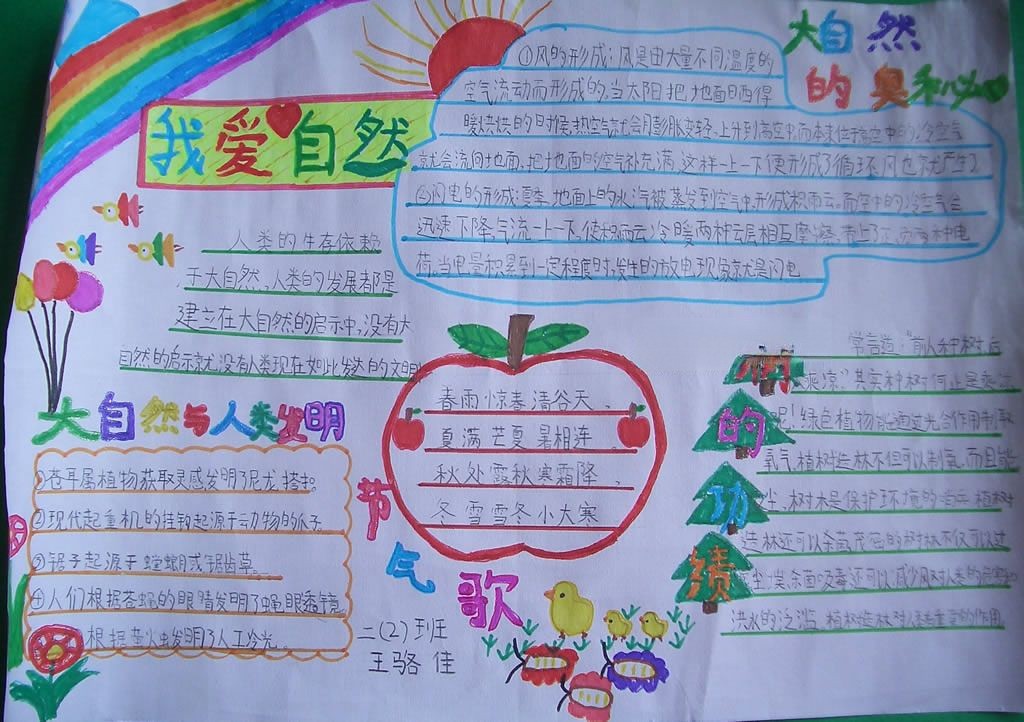 我爱自然
大自然
的奥秘
①风的形成：风是由大量不同温度的
空气流动而形成的，当太阳把地面晒得
暖烘烘的时候，热空气就会膨胀变轻，上升到高空中而本来位于高空中的冷空气
就会流向地面，把地面的空气补充满，这样一上一下便形成了循环，风也就产生了
②闪电的形成：地面上的水汽被蒸发到空气中，形成积雨云，而空中的冷空气会
迅速下降，气流一上一下，使积雨云冷暖两种云层相互摩擦，带上了正负两种电
荷，当电量积累到一定程度时，发生的放电现象就是闪电
人类的生存依赖
于大自然，人类的发展都是
建立在大自然的启示中，没有大
自然的启示就没有人类现在如此发达的文明
大自然与人类发明
①苍耳属植物获取灵感发明了尼龙搭扣。
②现代起重机的挂钩起源于动物的爪子
③锯子起源于螳螂或锯齿草。
④人们根据苍蝇的眼睛发明了蝇眼透镜
根据萤火虫发明了人工冷光。
节气歌
春雨惊春清谷天，
夏满芒夏暑相连，
秋处露秋寒霜降，
冬雪雪冬小大寒
二(2)班
王骆佳
树的功绩
常言道："前人种树后
凉"其实种树何止是乘凉
吧！绿色植物能通过光合作用制取
氧气，植树造林不但可以制氧，而且能
尘，树木是保护环境的卫士，植树
造林还可以杀菌，茂密的树林不仅可以过
尘粪杀菌吸毒还可以减少风对人类的危害和
洪水的泛滥，植树造林对人类重要的作用